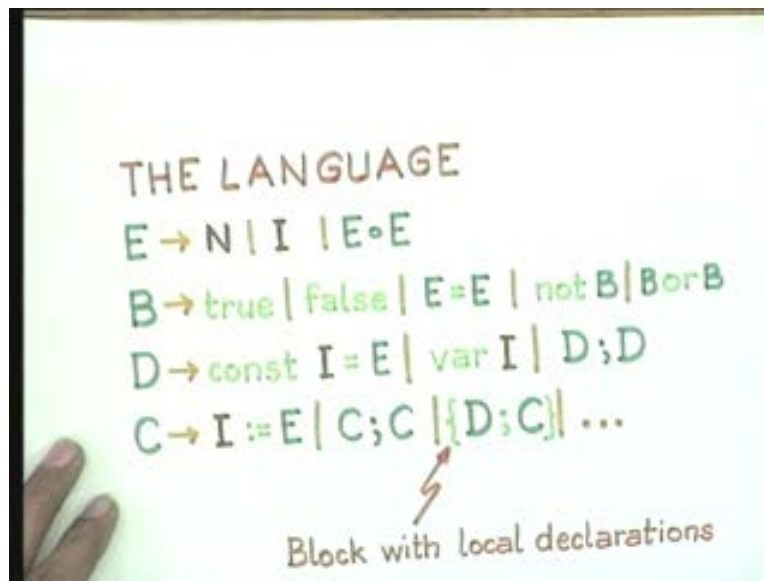 THE LANGUAGE
E → N | I | E∘E
B → true | false | E = E | not B | B or B
D → const I = E | var I | D ; D
C → I := E | C ; C | {D ; C} | ...
Block with local declarations